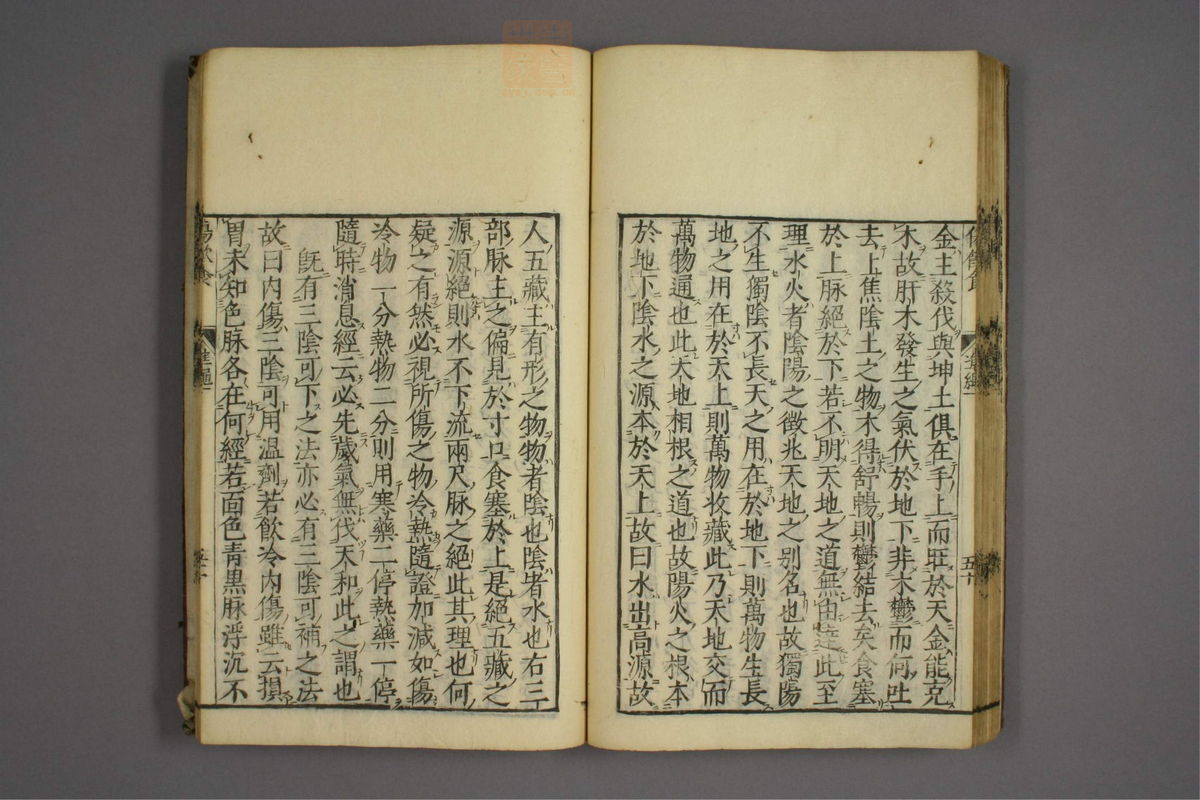 金主殺伐與坤土俱在手上而旺於天金能克
木故肝木發生之氣伏於地下非木鬱而何吐
去上焦陰土之物木得舒暢則鬱結去矣食塞
於上脉絕於下若不明天地之道無由達此至
理水火者陰陽之徵兆天地之别名也故獨陽
不生獨陰不長天之用在於地下則萬物生長
地之用在於天上則萬物收藏此乃天地交而
萬物通也此天地相根之道也故陽火之根本
於地下陰水之源本於天上故曰水出高源故
人五藏主有形之物物者陰也陰者水也右三
部脉主之偏見於寸口食塞於上是絕五藏之
源源絕則水不下流兩尺脉之絕此其理也何
疑之有然必視所傷之物冷熱隨證加減如傷
冷物一分熱物二分則用寒藥二停熱藥一停
隨時消息經云必先歲氣無伐天和此之謂也
既有三陰可下之法亦必有三陰可補之法
故曰內傷三陰可用温劑若飲冷內傷雖云損
胃未知色脉各在何經若面色青黑脉浮沉不